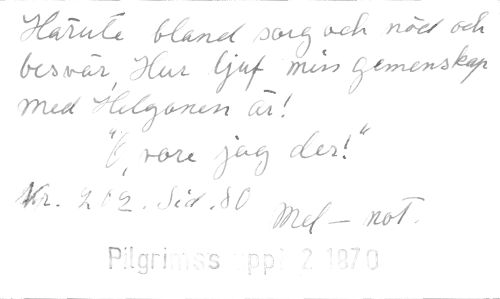 Härute bland sorg och nöd och
besvär, Hur ljuf min gemenskap
med Helgonen är!
"O, vore jag der!"
Nr. 202. Sid. 80
Mel – not.
Pilgrimss uppl 2 1870